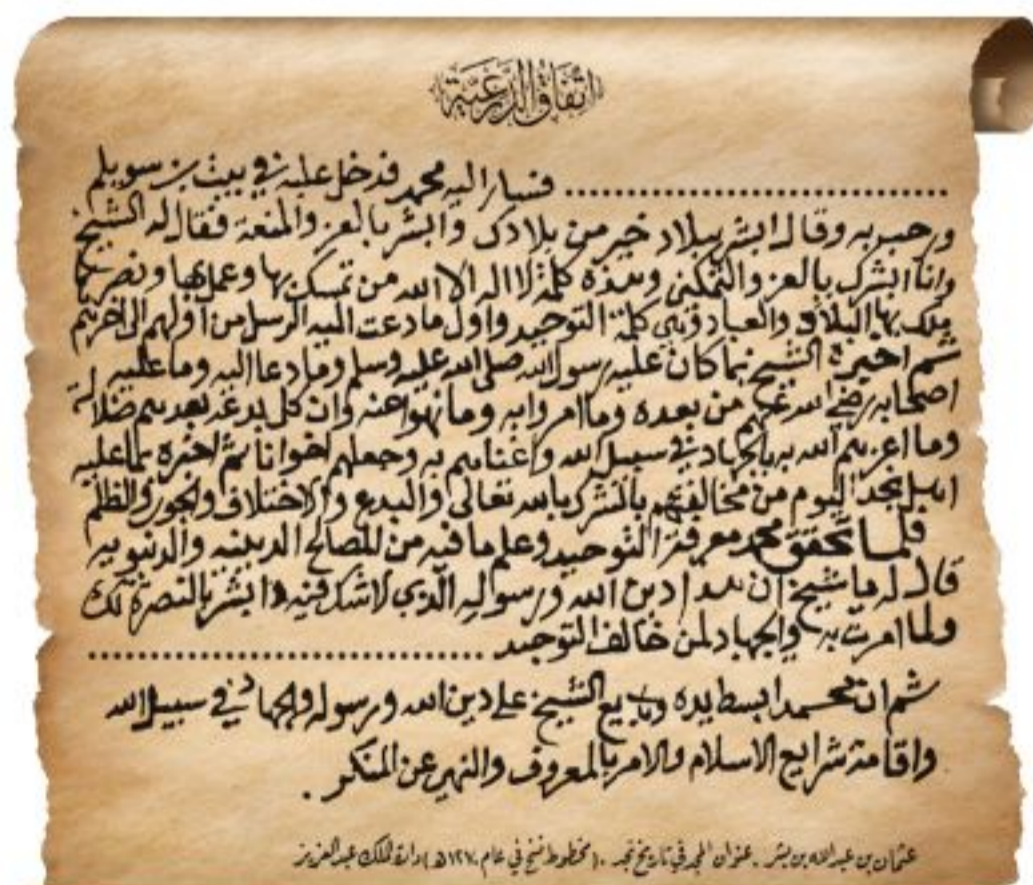 اتفاق الدرعية
فسار اليه محمد فدخل عليه في بيت بن سويلم
ورحب به وقال ابشر ببلاد خير من بلادك وابشر بالعز والمنعة فقال له الشيخ
وانا ابشرك بالعز والتمكين وهذه كلمة لا اله الا الله من تمسك بها وعمل بها ونصرها
ملك بها البلاد والعباد وهي كلمة التوحيد واول ما دعت اليه الرسل من اولهم الى اخرهم
ثم اخبره الشيخ بما كان عليه رسول الله صلى الله عليه وسلم وما دعا اليه وما عليه
اصحابه رضي الله عنهم من بعده وما امروا به وما نهوا عنه وان كل بدعة بعدهم ضلالة
وما اعزهم الله به بالجهاد في سبيل الله واغناهم به وجعلهم اخوانا ثم اخبره بما عليه
اهل نجد اليوم من مخالفتهم بالشرك بالله تعالى والبدع والاختلاف والجور والظلم
فلما تحقق محمد معرفة التوحيد وعلم ما فيه من المصالح الدينيه والدنيويه
قال له يا شيخ ان هذا دين الله ورسوله الذي لا شك فيه وابشر بالنصرة لك
ولما امرت به والجهاد لمن خالف التوحيد
ثم ان محمدا بسط يده وبايع الشيخ على دين الله ورسوله والجهاد في سبيل الله
واقامة شرايع الاسلام والامر بالمعروف والنهي عن المنكر .
عثمان بن عبدالله بن بشر . عنوان المجد في تاريخ نجد . ( مخطوط نسخ في عام ١٢٧٠هـ ) دارة الملك عبدالعزيز